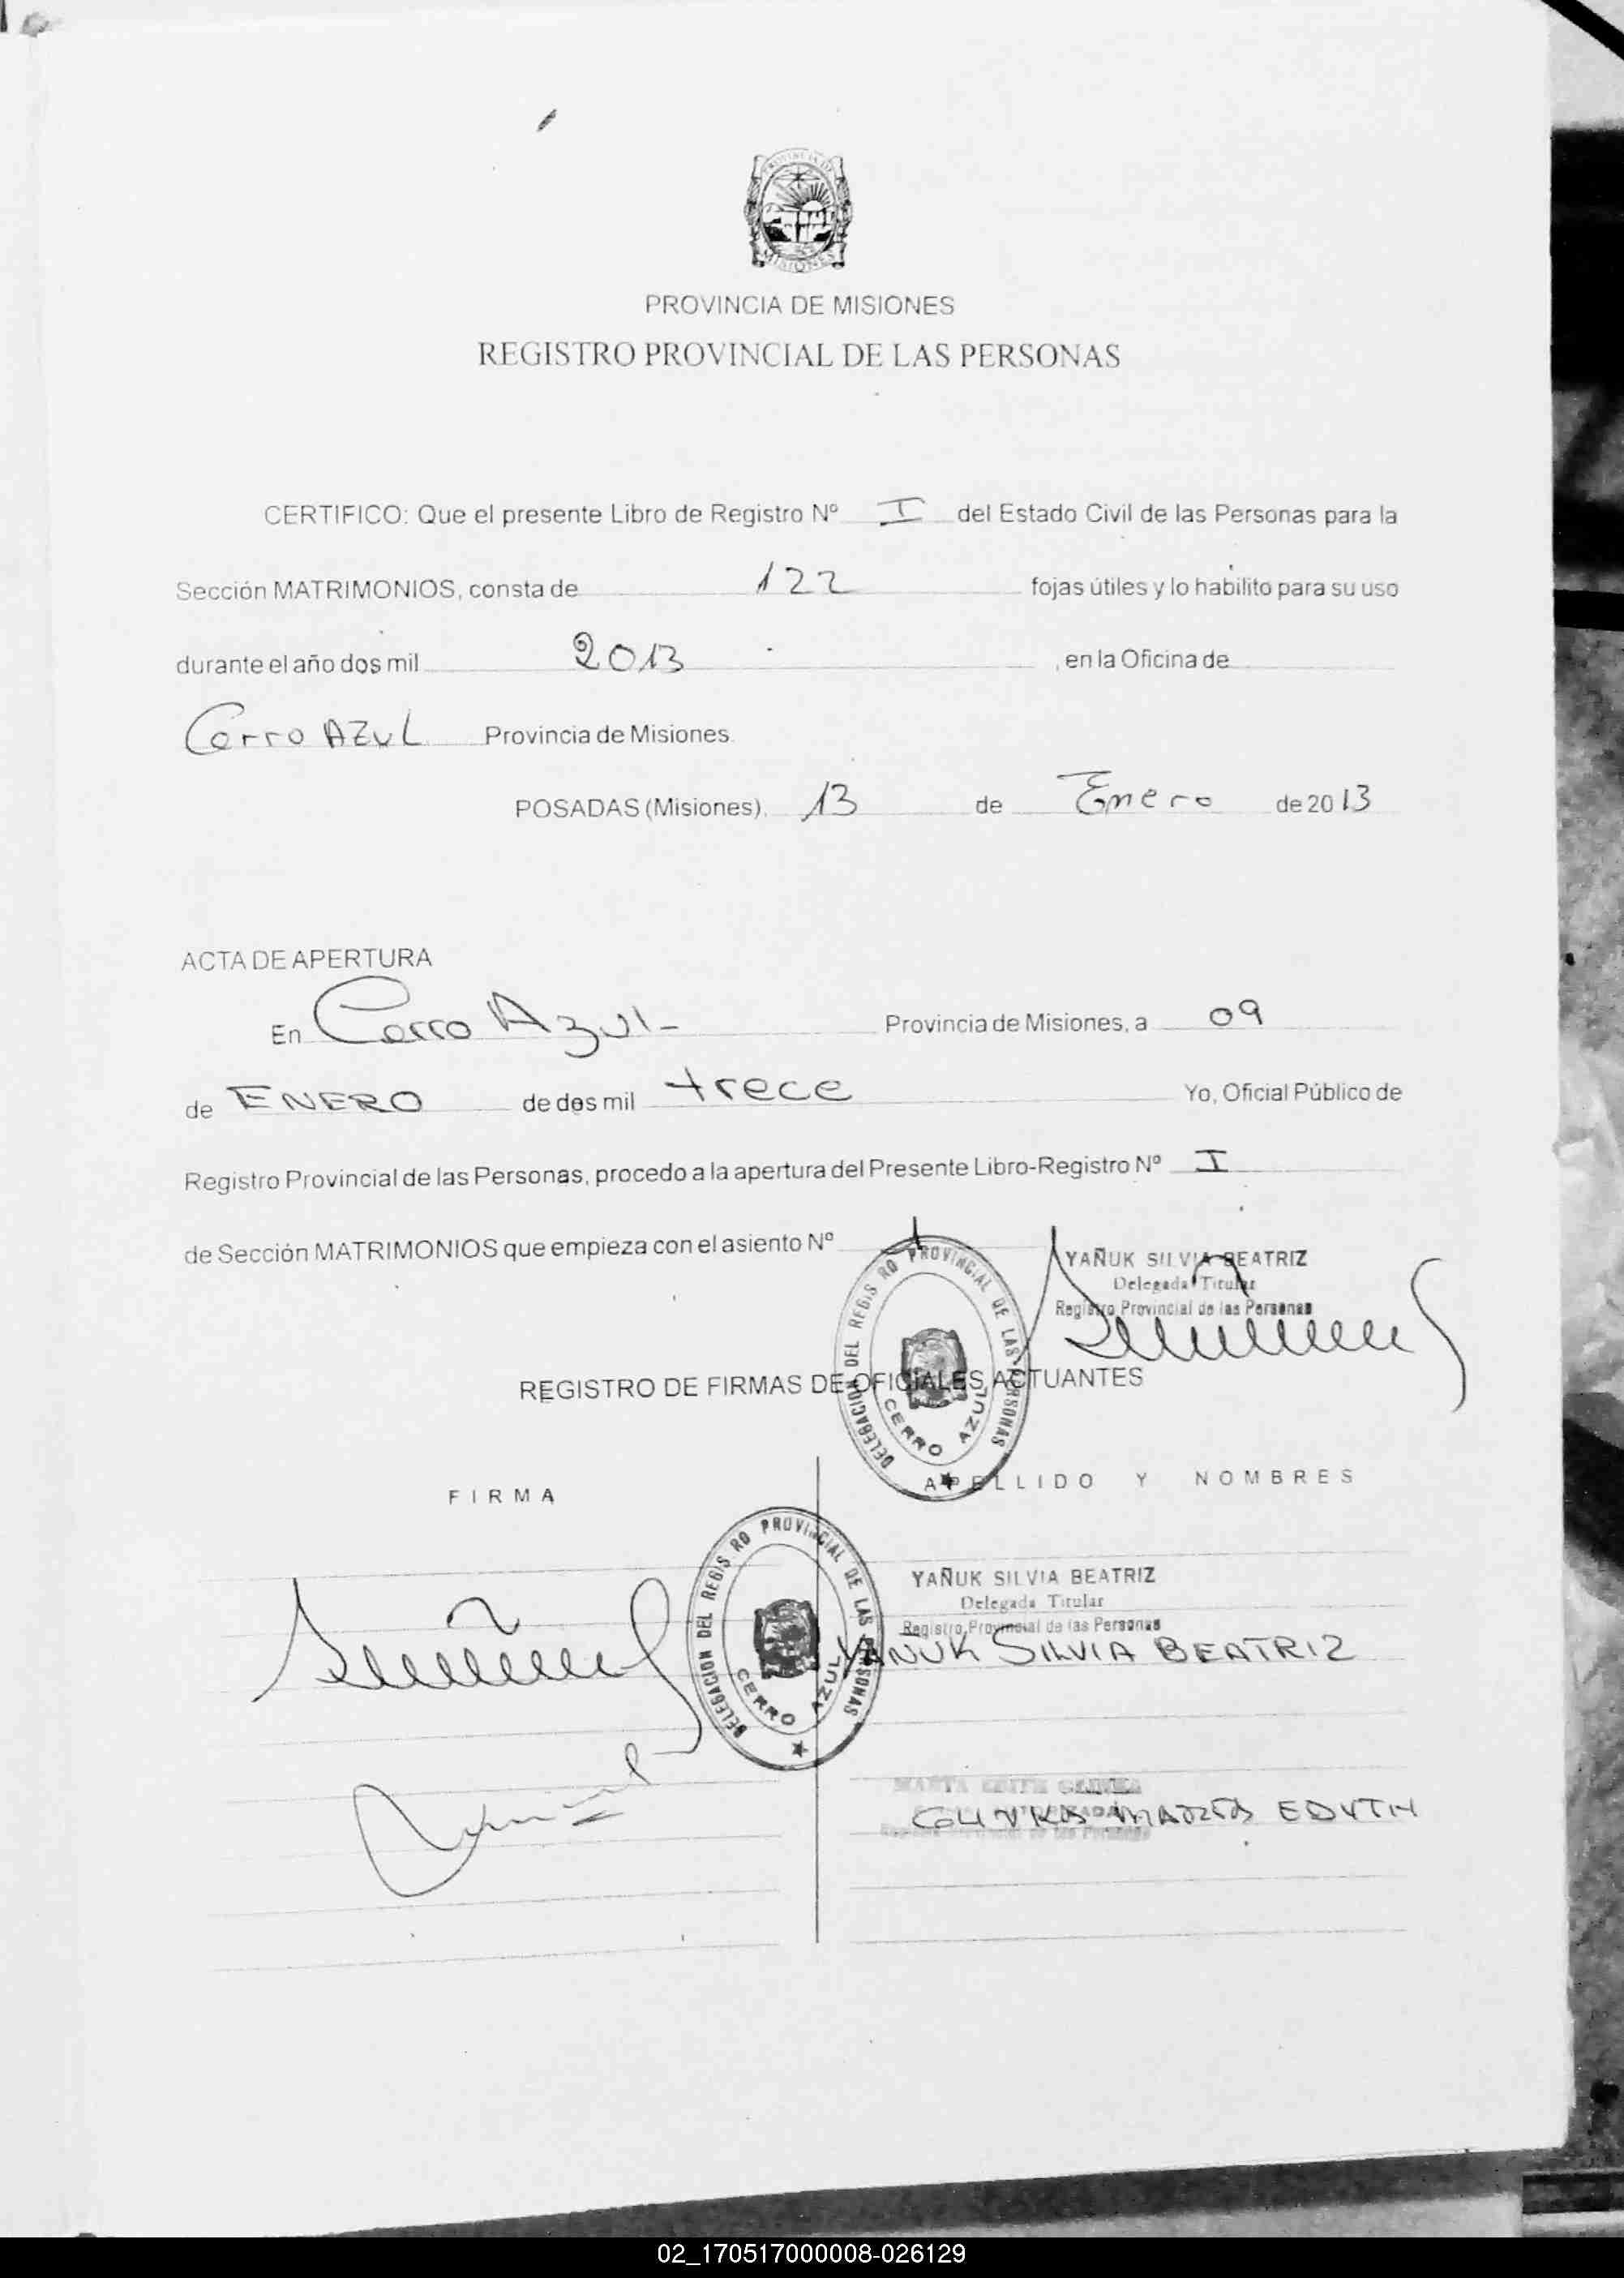 PROVINCIA DE
MISIONES
PROVINCIA DE MISIONES
REGISTRO PROVINCIAL DE LAS PERSONAS
CERTIFICO: Que el presente Libro de Registro Nº I del Estado Civil de las Personas para la
Sección MATRIMONIOS, consta de 122 fojas útiles y lo habilito para su uso
durante el año dos mil 2013 , en la Oficina de
Cerro AZUL Provincia de Misiones.
POSADAS (Misiones), 13 de Enero de 2013
ACTA DE APERTURA
En Cerro Azul - Provincia de Misiones, a 09
de ENERO de dos mil trece Yo, Oficial Público de
Registro Provincial de las Personas, procedo a la apertura del Presente Libro-Registro Nº I
de Sección MATRIMONIOS que empieza con el asiento Nº
YAÑUK SILVIA BEATRIZ
Delegada Titular
Registro Provincial de las Personas
DELEGACION DEL REGISRO PROVINCIAL DE LAS PERSONAS
CERRO AZUL
REGISTRO DE FIRMAS DE OFICIALES ACTUANTES
FIRMA
APELLIDO Y NOMBRES
DELEGACION DEL REGISRO PROVINCIAL DE LAS PERSONAS
CERRO AZUL
YAÑUK SILVIA BEATRIZ
Delegada Titular
Registro Provincial de las Personas
YAÑUK SILVIA BEATRIZ
MARTA EDITH
EDITH
02_170517000008-026129